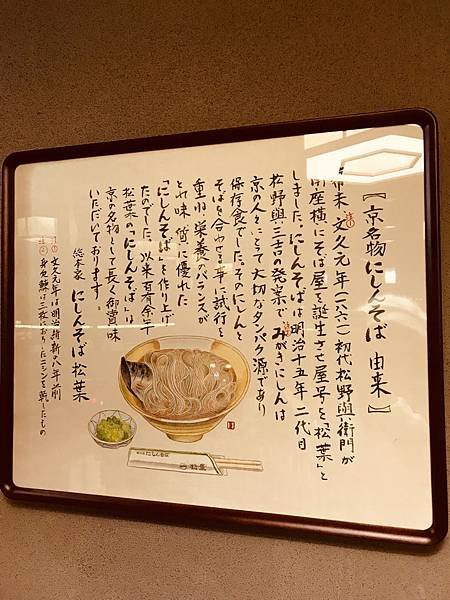 【京名物にしんそば 由来】
幕末 文久元年(一八六一)初代松野與衛門が
南座横にそば屋を誕生させ屋号を「松葉」と
しました。にしんそばは明治十五年 二代目
松野與三吉の発案で みがきにしんは
京の人々にとって大切なタンパク源であり
保存食でした。そのにしんと
そばを合わせる事に試行を
重ね、栄養のバランスが
とれ味、質に優れた
「にしんそば」を作り上げ
たのでした。以来百有余年
松葉の「にしんそば」は
京の名物として長く御賞味
いただいております
総本家 にしんそば 松葉
注① 文久元年は明治維新の八年前
注② 身欠鰊は三枚におろしたニシンを乾したもの
注①
にしんそば
松葉